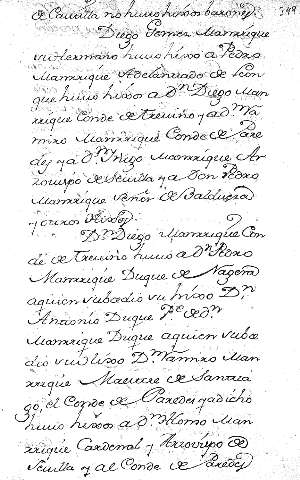 349
de Castilla no huuo hixos barones
Diego Gomez Manrrique
su hermano huuo hixo a Pedro
Manrrique Adelantado de Leon
que huuo hixos a Dn. Diego Man
rrique Conde de treuiño y a Dn. Ra
miro Manrrique Conde de Pare
des y a Dn. Yñigo Manrrique Ar
zobispo de Seuilla y a Don Pedro
Manrrique señor de Baldezcaray
y otros hixos.
Dn. Diego Manrrique Con
de de treuiño huuo a Dn. Pedro
Manrrique Duque de Nagera
a quien subcedio su hixo Dn.
Antonio Duque Pe. de Dn.
Manrrique Duque a quien subce
dio su hixo Dn. Ramiro Man
rrique Maestre de Santia
go, el Conde de Paredes ya dicho
huuo hixos a Dn. Alonso Man
rrique Cardenal y Arzobispo de
Seuilla y al Conde de Paredes